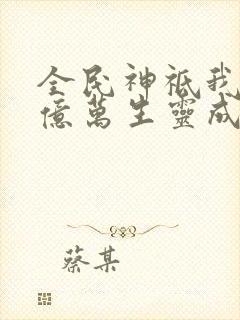 全民神祇我
億萬生靈成
蔡某